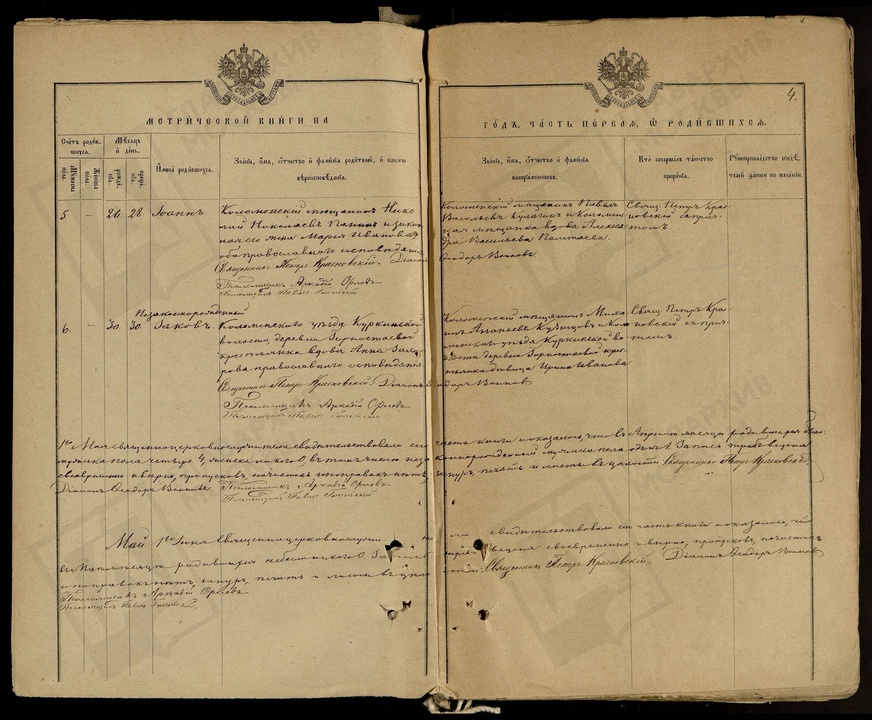 4.
МЕТРИЧЕСКОЙ КНИГИ НА
ГОДЪ, ЧАСТЬ ПЕРВАЯ, Ѡ РОДИВШИХСЯ.
Счетъ родившихся.
Мужеска пола.
Женска пола.
Мѣсяцъ и день.
рожденія.
крещенія.
Имена родившихся.
Званіе, имя, отчество и фамилія родителей, и какого
вѣроисповѣданія.
Званіе, имя, отчество и фамилія
воспріемниковъ.
Кто совершалъ таинство
крещенія.
Рукоприкладство свидѣтелей записи по желанію.
5.
-
26.
28.
Іоаннъ.
Коломенскій мѣщанинъ Нико
лай Николаевъ Панинъ и закон
ная его жена Марія Иванова
оба православнаго исповѣданія
Священникъ Петръ Красновскій. Діаконъ Ѳеодоръ Воиновъ
Псаломщикъ Аркадій Орловъ
Псаломщикъ Павелъ
Коломенскій мѣщанинъ Павелъ
Васильевъ Кулагинъ и Коломен
ская мѣщанка вдова Алекса
дра Васильева
Свящ. Петръ Крас
новскій съ прич
томъ.
Незаконнорожденный
6.
-
30.
30.
Іаковъ.
Коломенскаго уѣзда Куркинской
волости, деревни Горностаевой
крестьянка вдова Анна Заха
рова православнаго исповѣданія
Священникъ Петръ Красновскій. Діаконъ Ѳеодоръ Воиновъ
Псаломщикъ Аркадій Орловъ
Псаломщикъ Павелъ
Коломенскій мѣщанинъ Миха
илъ Кузнецовъ и Коло
менскаго уѣзда Куркинской во
лости деревни Горностаевой крес
тьянка дѣвица Ирина Иванова
Свящ. Петръ Кра
сновскій съ при
томъ.
1го Мая священноцерковнослужители свидѣтельствовали сію часть книги и оказалось, что въ Апрѣлѣ мѣсяцѣ родившихся
мужеска пола четыре 4, женска никого 0, въ томъ числѣ незаконнорожденный мужеска пола одинъ 1. Запись произведена
своевременно и вѣрно, пропусковъ, почистокъ и поправокъ нѣтъ, шнуръ, печать и листы въ цѣлости Священникъ Петръ Красновскій.
Діаконъ Ѳеодоръ Воиновъ. Псаломщикъ Аркадій Орловъ
Псаломщикъ Павелъ
Май 1го Іюня священноцерковнослужители свидѣтельствовали сію часть книги и оказалось, что
въ Маѣ мѣсяцѣ родившихся не было никого 0. Запись произведена своевременно и вѣрно, пропусковъ, почистокъ
и поправокъ нѣтъ, шнуръ, печать и листы въ цѣлости. Священникъ Петръ Красновскій. Діаконъ Ѳеодоръ Воиновъ
Псаломщикъ Аркадій Орловъ
Псаломщикъ Павелъ